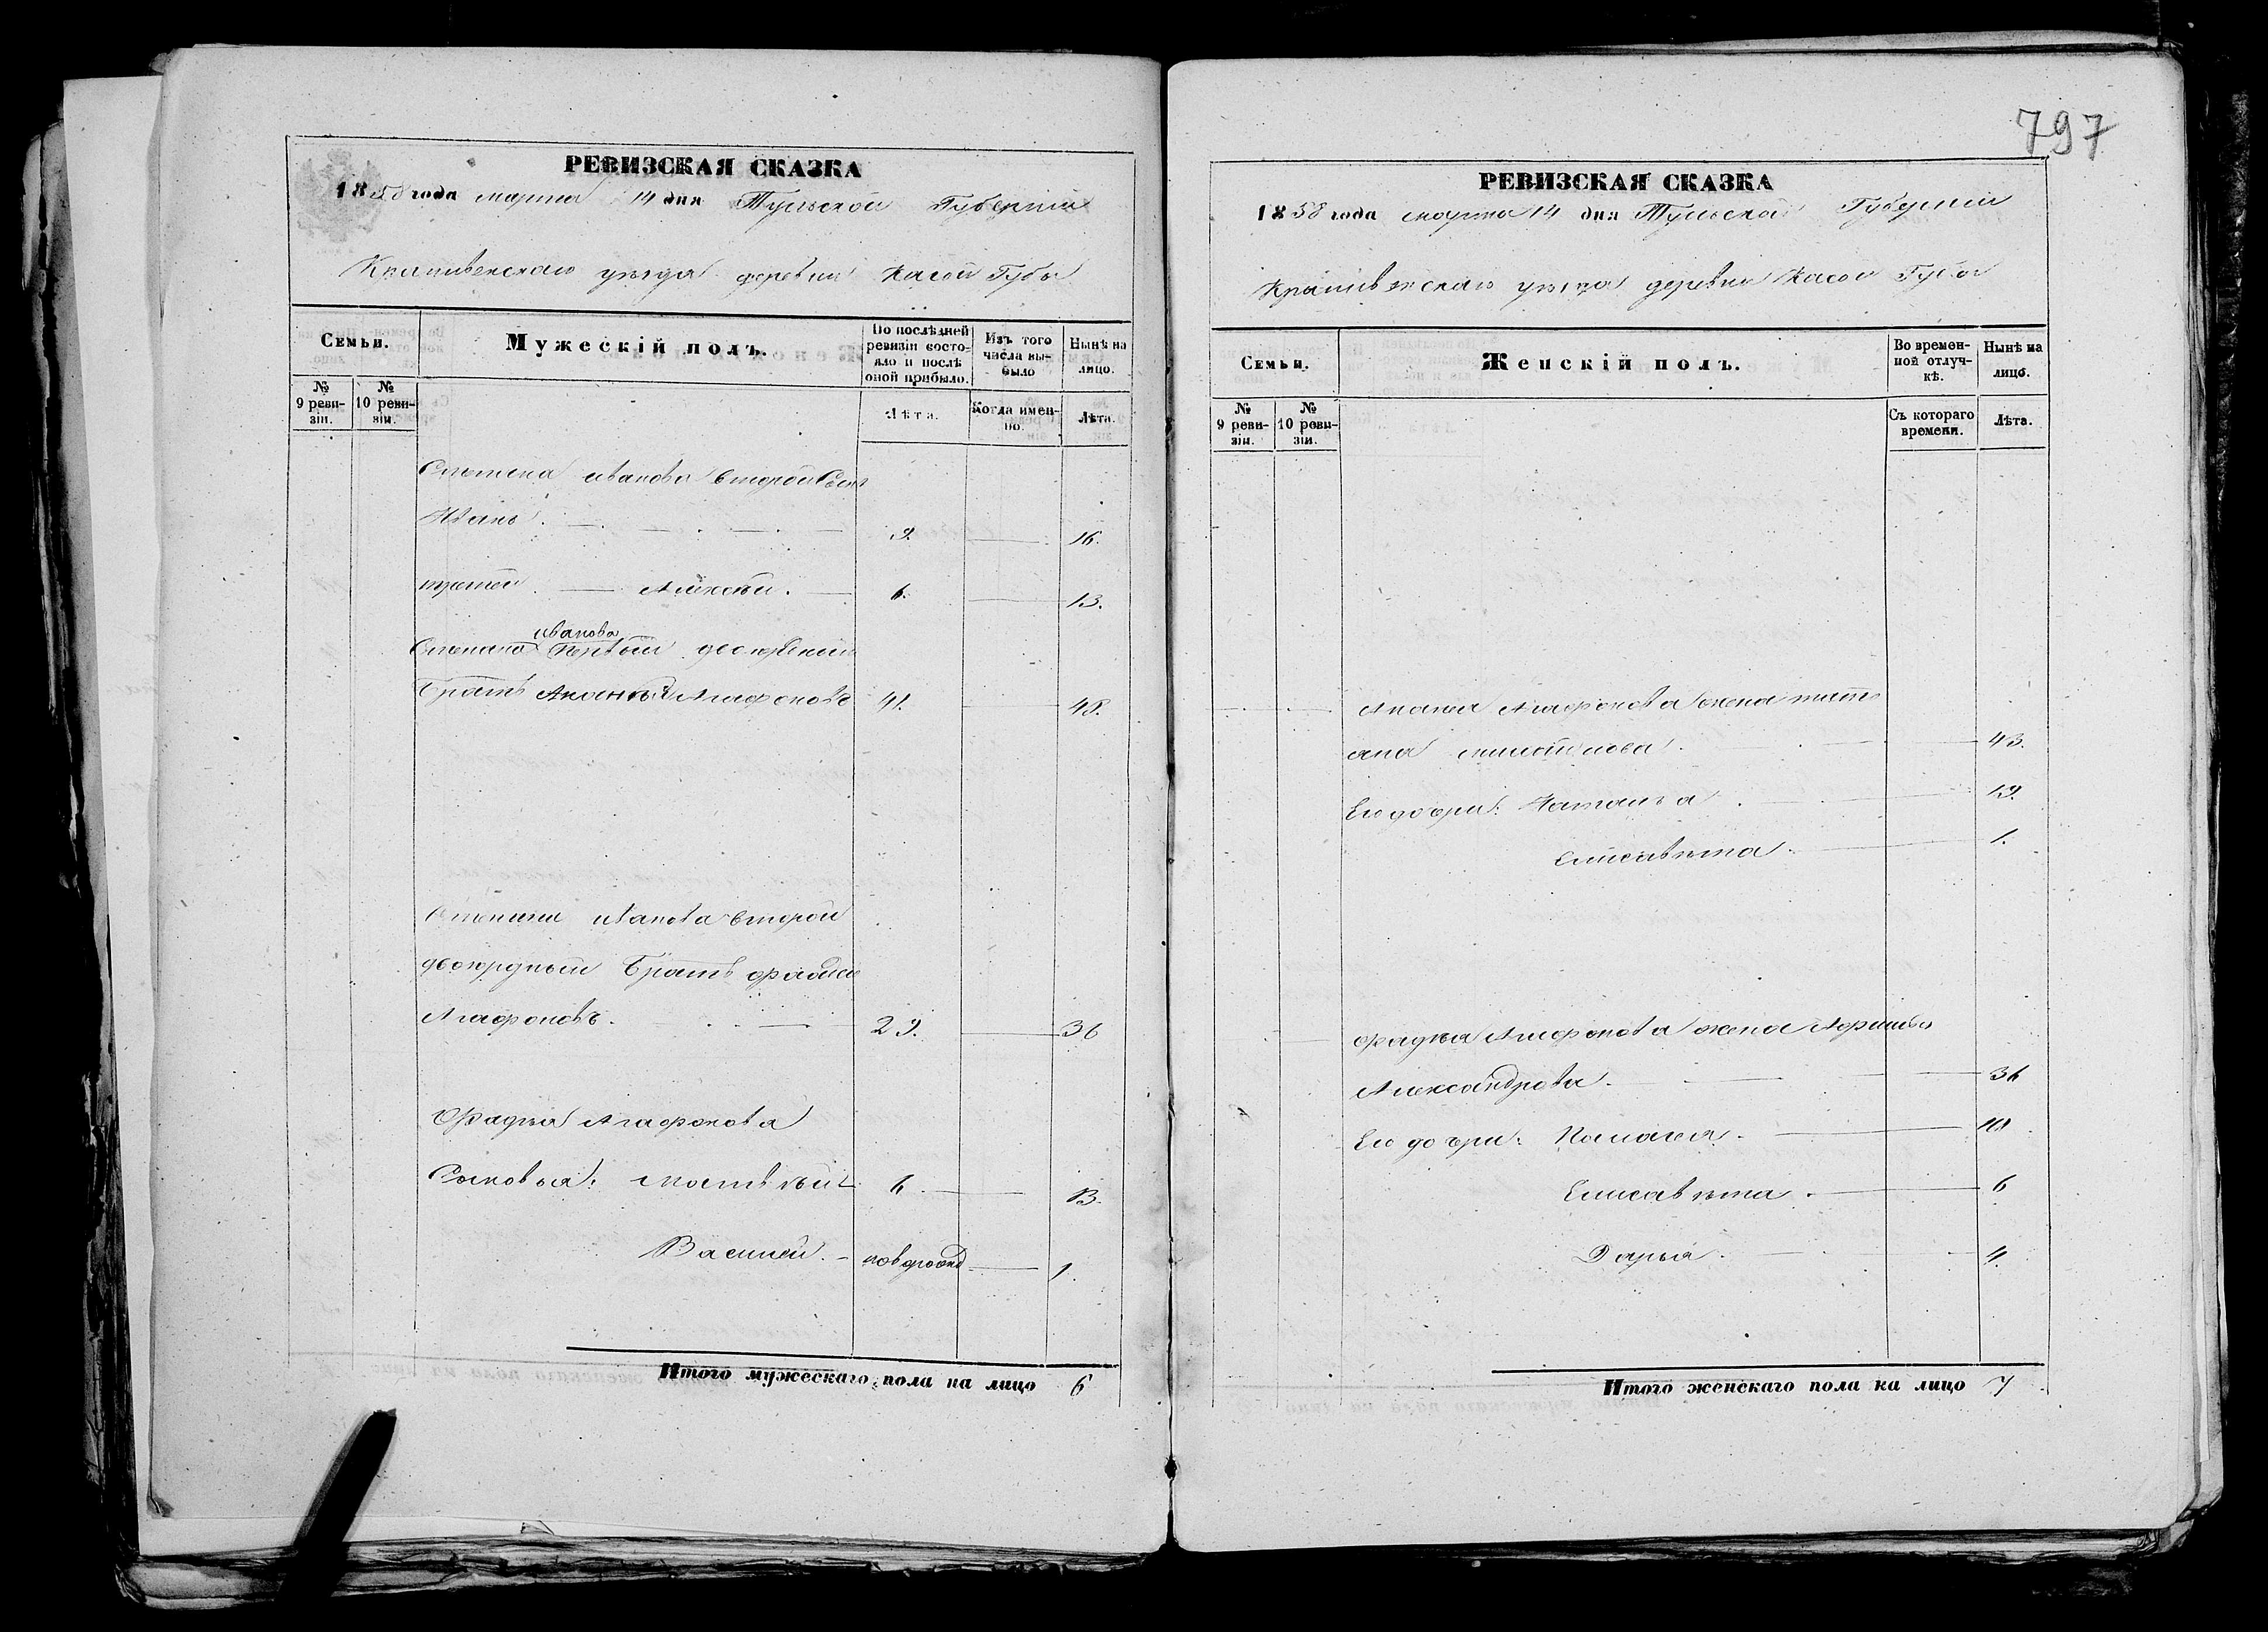 РЕВИЗСКАЯ СКАЗКА
1858 года марта 14 дня Тульской Губерніи
Крапивенскаго уѣзда деревни Касой Губы
Семьи.
Мужескій полъ.
По послѣдней ревизіи состояло и послѣ оной прибыло.
Изъ того числа выбыло
Нынѣ на лицо.
№ 9 ревизіи.
№ 10 ревизіи.
Лѣта.
Когда именно.
Лѣта.
Степана иванова второй Сынъ
Иванъ. 9. 16.
третей Алексѣй. 6. 13.
иванова
Степана Первый двоюрбный
Братъ Ананий Агафоновъ 41. 48.
Степана иванова второй
двоюрдный Братъ фадѣй
Агафоновъ. 29. 36
Фадѣя Агафонова
Сыновья: Матвѣй 6. 13.
Василей. новорожд 1.
Итого мужескаго пола на лицо 6
797
РЕВИЗСКАЯ СКАЗКА
1858 года марта 14 дня Тульской Губерніи
Крапивенскаго уѣзда деревни Касой Губы
Семьи.
Женскій полъ.
Во временной отлучкѣ.
Нынѣ на лицо.
№ 9 ревизіи.
№ 10 ревизіи.
Съ котораго времени.
Лѣта.
Анания Агафонова жена тать
яна 43.
Его дочери: Наталья. 19.
Елисавѣта. 1.
фадѣя Агафонова жена
Александрова. 36
Его дочери: Палагея. 10
Елисавѣта. 6
Дарья. 4.
Итого женскаго пола на лицо 7